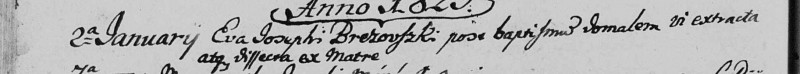 Anno 1823.
2ª January Eva Josephi Brezovszki post baptismũ domalem vi extracta
atq dissecta ex Matre